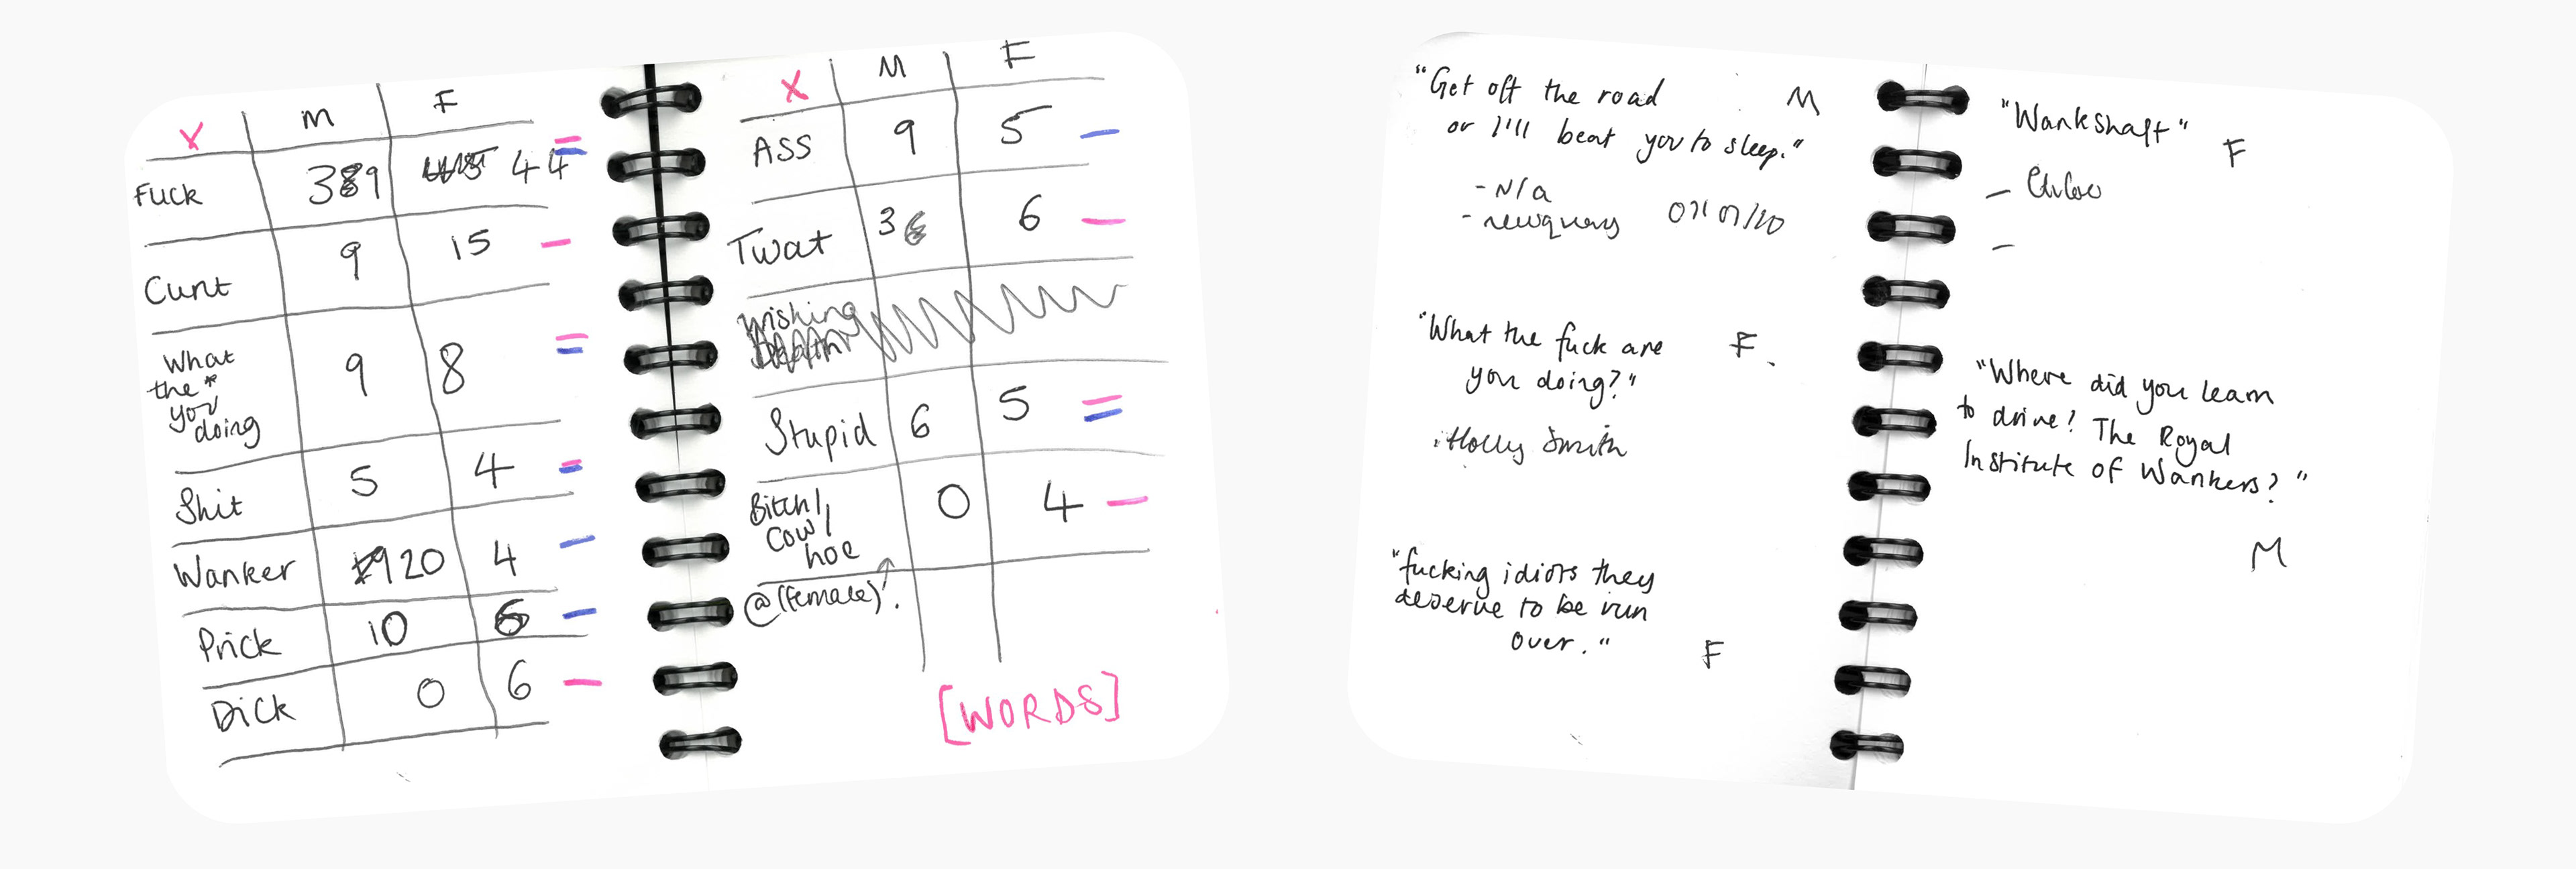 X M F
Fuck 39 44
Cunt 9 15
What
the * 9 8
you
doing
Shit 5 4
Wanker 20 4
Prick 10 6
Dick 0 6
X M F
ASS 9 5
Twat 3 6
Wishing
Death
Stupid 6 5
Bitch/
Cow/ 0 4
hoe
@(female)!.
[WORDS]
"Get off the road M
or I'll beat you to sleep."
- N/a
- newquay
"What the fuck are F.
you doing?"
Holly Smith
"fucking idiots they
deserve to be run
over." F
"Wankshaft" F
- Chloe
-
"Where did you learn
to drive? The Royal
Institute of Wankers?"
M